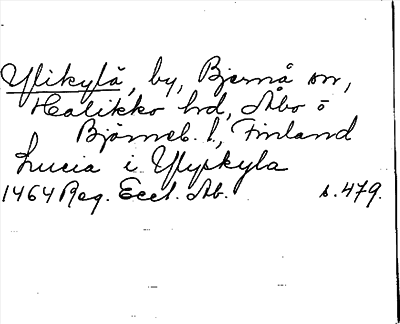 Ylikylä, by, Bjernå sn,
Halikko hd, Åbo o
Björneb. l, Finland
Lucia i Ylyskyla
1464 Reg. Eccl. Ab. s. 479.